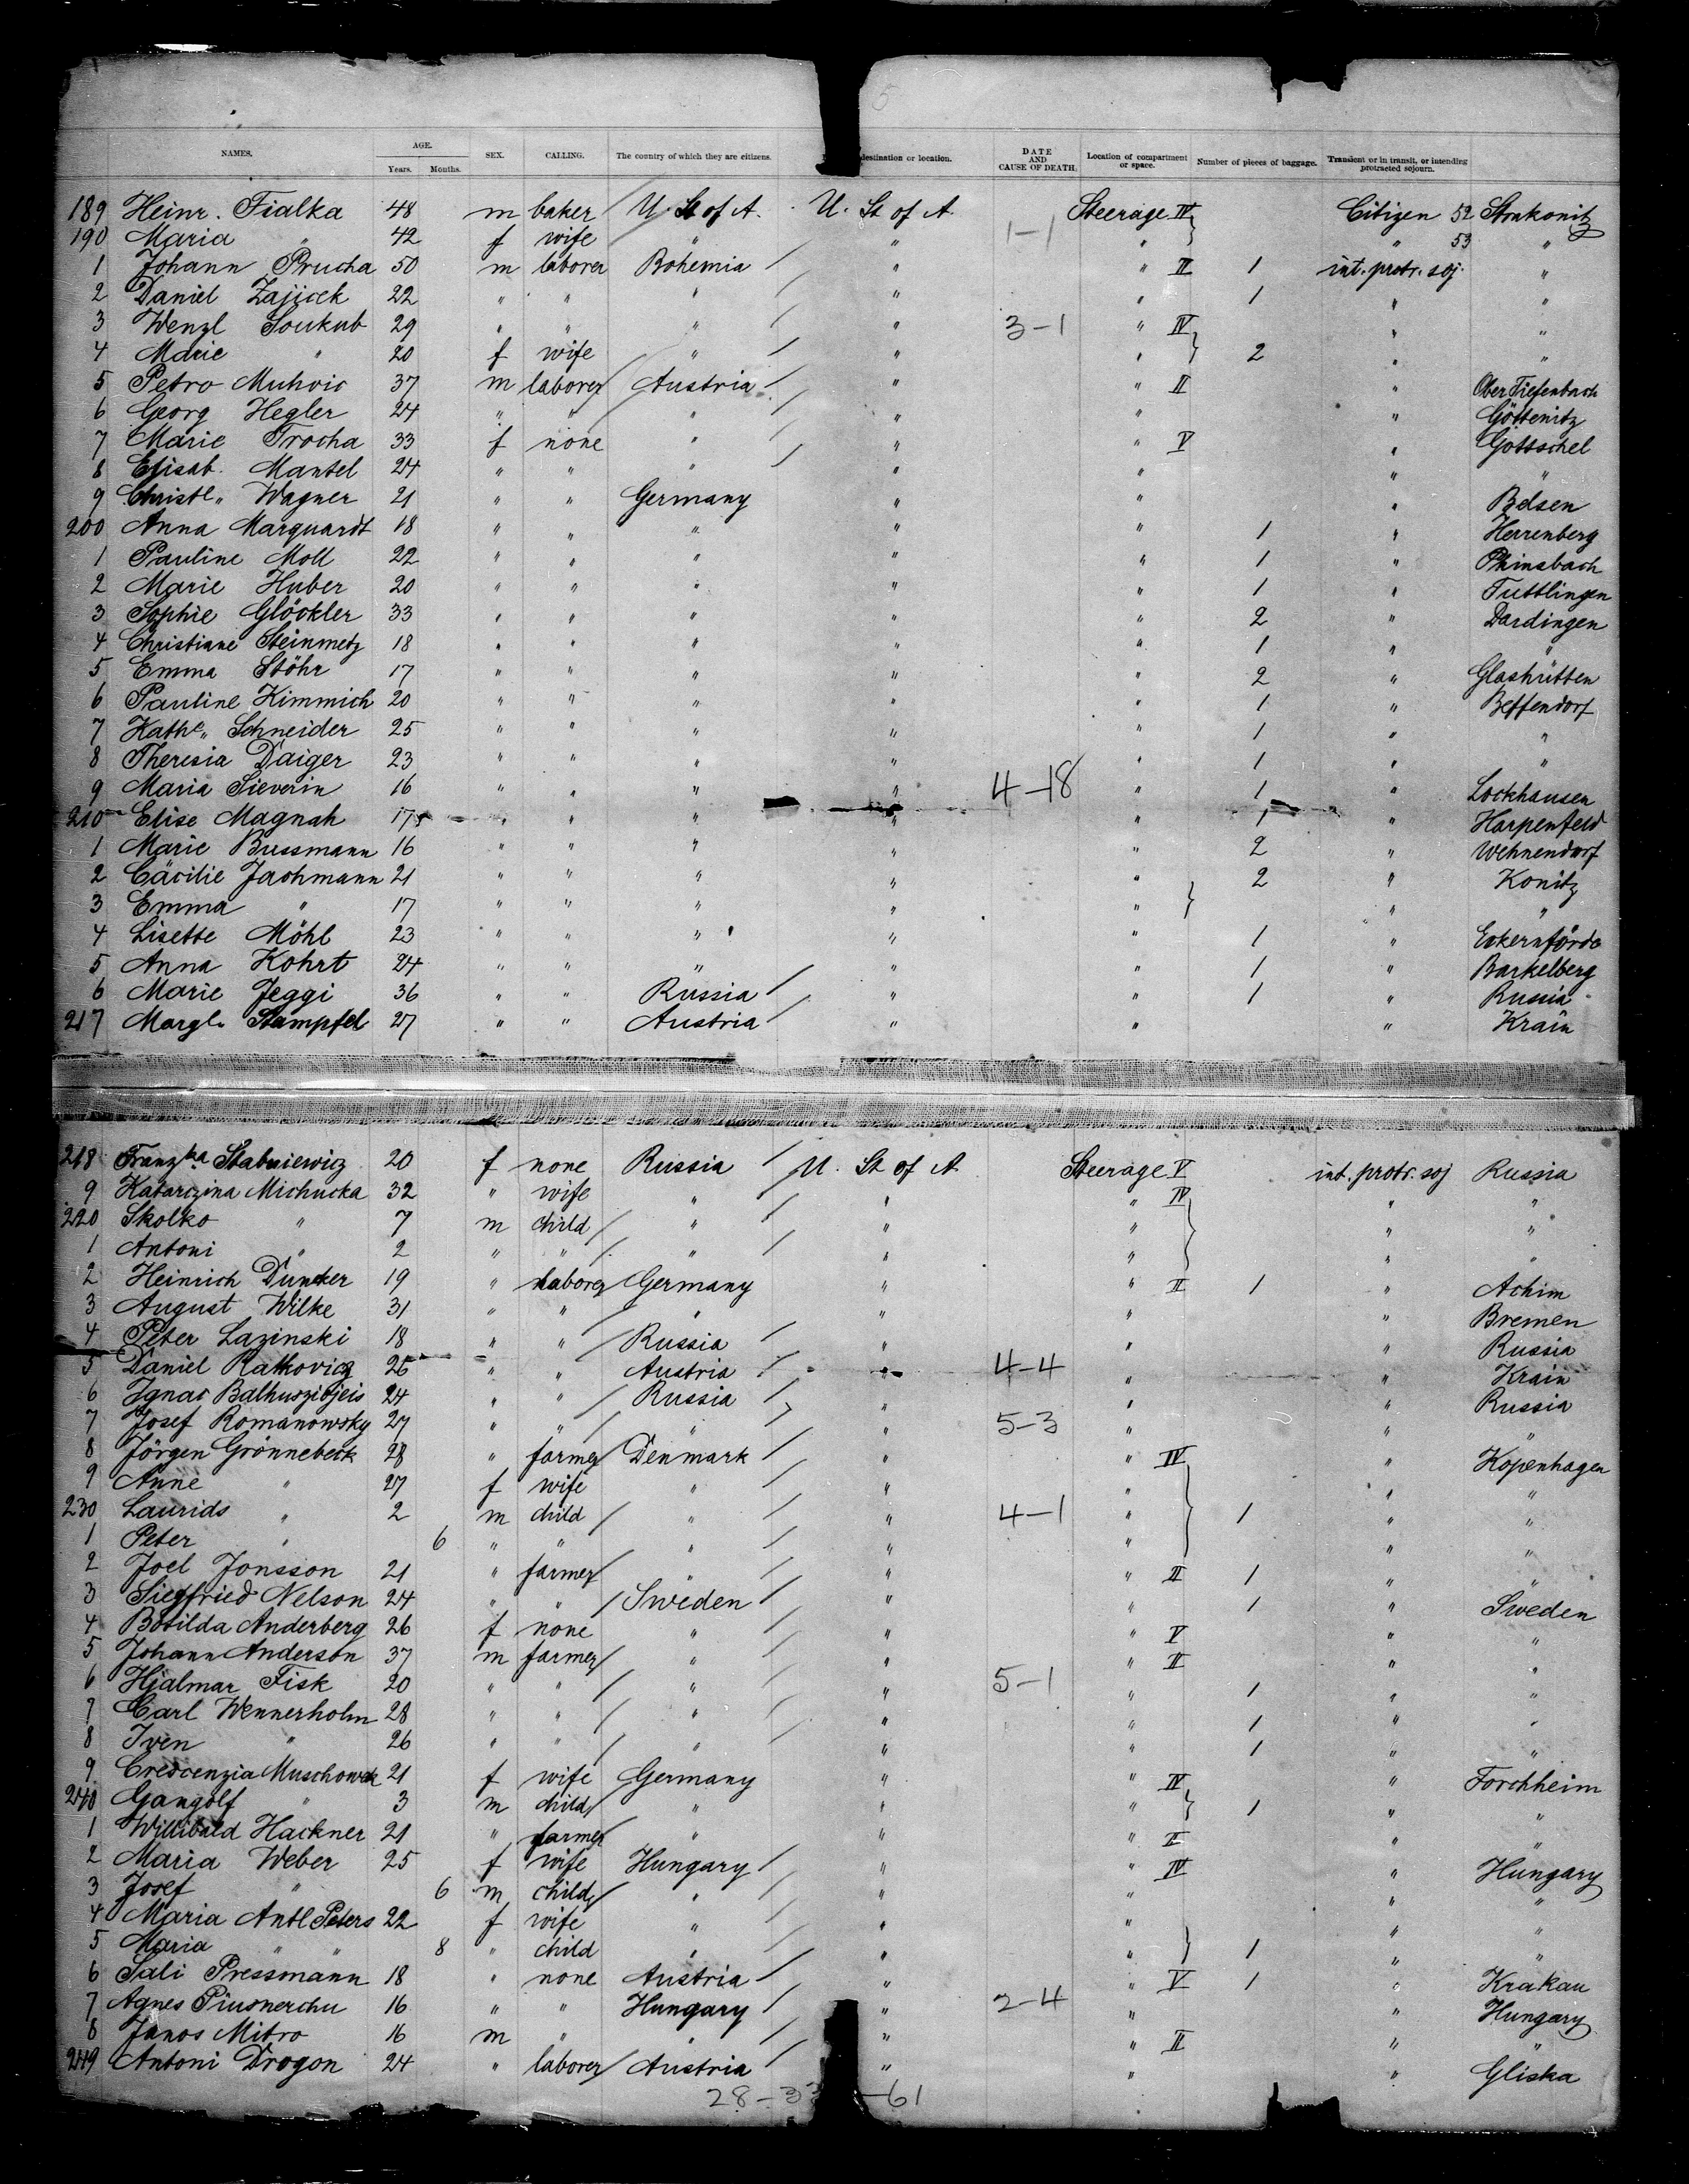 5
NAMES. AGE. Years. Months. SEX. CALLING. The country of which they are citizens. destination or location. DATE AND CAUSE OF DEATH. Location of compartment or space. Number of pieces of baggage. Transient or in transit, or intending protracted sojourn.
189 Heinr. Fialka 48 m baker U. St of A. U. St of A. Steerage IV Citizen 52 Strakonitz
190 Maria " 42 f wife " " 1-1 " " 53 "
1 Johann Prucha 50 m laborer Bohemia " " II 1 int. protr. soj. "
2 Daniel Zajicek 22 " " " " " 1 " "
3 Wenzl Soukub 29 " " " " 3-1 " IV " "
4 Marie " 20 f wife " " " 2 " "
5 Petro Muhvic 37 m laborer Austria " " II " Ober Tiefenbach
6 Georg Hegler 24 " " " " " " Göttenitz
7 Marie Trocha 33 f none " " " V " Gottschel
8 Elisab. Mantel 24 " " " " " " "
9 Christe" Wagner 21 " " Germany " " " Belsen
200 Anna Marquardt 18 " " " " " 1 " Herrenberg
1 Pauline Moll 22 " " " " " 1 "
2 Marie Huber 20 " " " " " 1 " Tuttlingen
3 Sophie Glöckler 33 " " " " " 2 " Dardingen
4 Christiane Steinmetz 18 " " " " " 1 " "
5 Emma Stöhr 17 " " " " " 2 " Glashütten
6 Pauline Kimmich 20 " " " " " 1 " Beffendorf
7 Kathe" Schneider 25 " " " " " 1 " "
8 Theresia Daiger 23 " " " " " 1 " "
9 Maria Sieverin 16 " " " " 4-18 " 1 " Lockhausen
210 Elise Magnah 17 " " " " " 1 " Harpenfeld
1 Marie Bussmann 16 " " " " " 2 " Wehnendorf
2 Cäcilie Jachmann 21 " " " " " 2 " Konitz
3 Emma " 17 " " " " " " "
4 Lisette Möhl 23 " " " " " 1 " Eckernförde
5 Anna Kohrt 24 " " " " " 1 " Barkelberg
6 Marie Jeggi 36 " " Russia " " 1 " Russia
217 Margl. Stampfel 27 " " Austria " " " Krain
218 Franzka Stabniewicz 20 f none Russia U. St of A Steerage V int. protr. soj Russia
9 Katarczina Michucka 32 " wife " " " IV " "
220 Skolko " 7 m child " " " " "
1 Antoni " 2 " " " " " " "
2 Heinrich Duncker 19 " laborer Germany " " II 1 " Achim
3 August Wilke 31 " " " " " " Bremen
4 Peter Lazinski 18 " " Russia " " " Russia
5 Daniel Ratkovicz 25 " " Austria " 4-4 " " Krain
6 Ignac 24 " " Russia " " " Russia
7 Josef Romanowsky 27 " " " " 5-3 " " "
8 Jörgen Grönnebeck 28 " farmer Denmark " " IV " Kopenhagen
9 Anne " 27 f wife " " " " "
230 Laurids " 2 m child " " 4-1 " 1 " "
1 Peter " 6 " " " " " " "
2 Joel Jonsson 21 " farmer " " " II 1 " "
3 Siegfried Nelson 24 " " Sweden " " 1 " Sweden
4 Botilda Anderberg 26 f none " " " V " "
5 Johann Anderson 37 m farmer " " " II " "
6 Hjalmar Fisk 20 " " " " 5-1 " 1 " "
7 Carl Wennerholm 28 " " " " " 1 " "
8 Iven " 26 " " " " " 1 " "
9 Crescenzia Muschoweck 21 f wife Germany " " IV " Forchheim
240 Gangolf " 3 m child " " " 1 " "
1 Willibald Hackner 21 " farmer " " " II " "
2 Maria Weber 25 f wife Hungary " " IV " Hungary
3 Josef " 6 m child " " " " "
4 Maria Antl Peters 22 f wife " " " " "
5 Maria " " 8 " child " " " 1 " "
6 Sali Pressmann 18 " none Austria " " V 1 " Krakau
7 Agnes Piusnerchu 16 " " Hungary " 2-4 " " Hungary
8 Janos Mitro 16 m " " " " II " "
249 Antoni Drogon 24 " laborer Austria " " " Gliska
28-33 -61